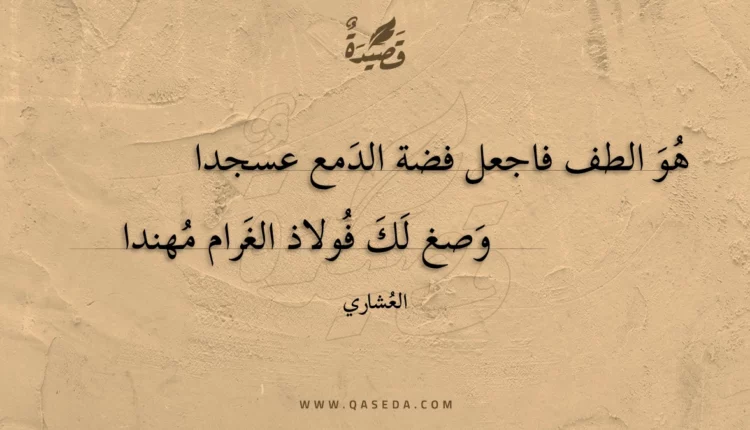 قَصِيْدَةٌ
هُوَ الطف فاجعل فضة الدَمع عسجدا
وَصغ لَكَ فُولاذ الغَرام مُهندا
العُشاري
WWW.QASEDA.COM